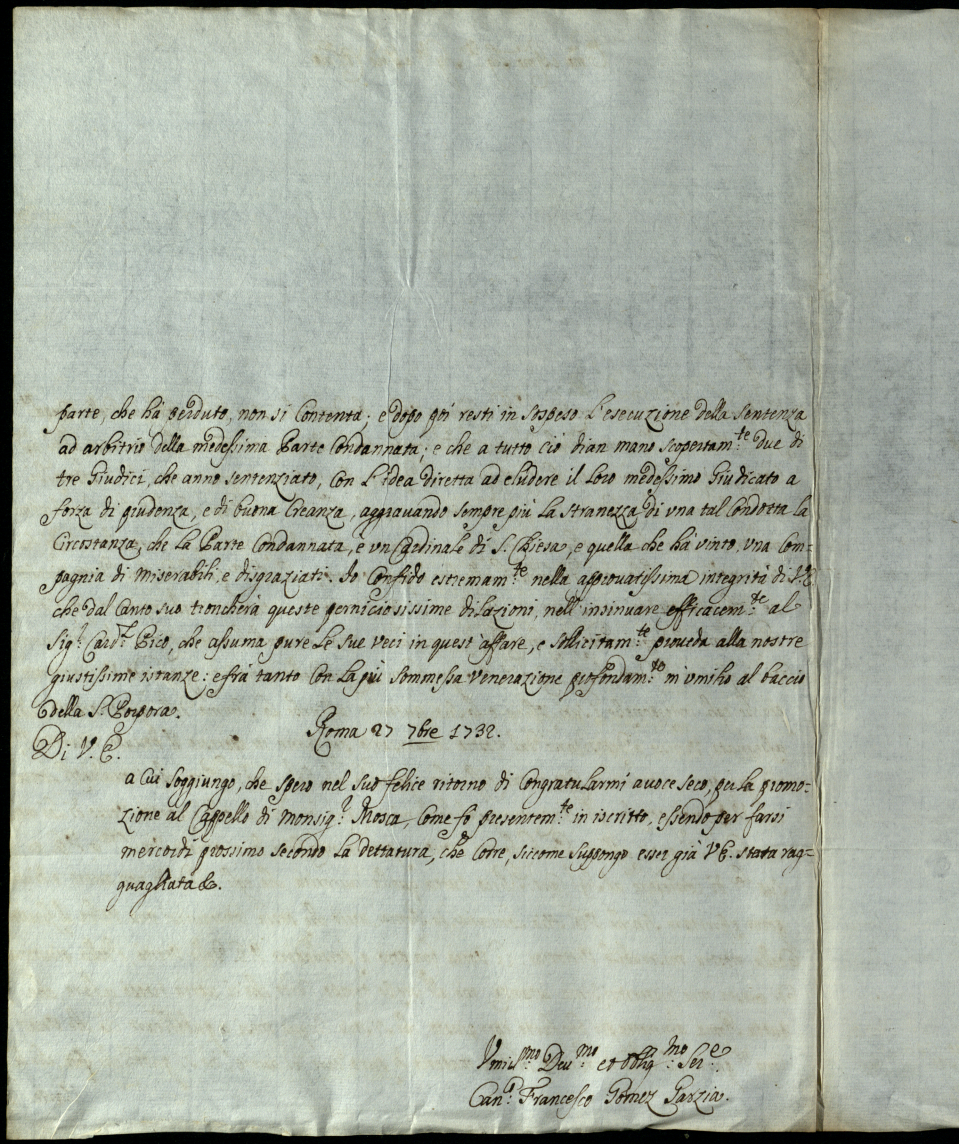 parte, che hà perduto, non si Contenta; e dopo poi resti in sospeso l'esecuzione della sentenza
ad arbitrio della medessima Parte Condannata; e che a tutto ciò dian mano scopertam.te due di
tre Giudici, che anno sentenziato, con l'Idea diretta ad eludere il loro medessimo Giudicato a
forza di giudenza, e di buona Creanza, aggravando sempre più la stranezza di una tal Condotta la
Circostanza, che la Parte Condannata, è un Cardinale di S. Chiesa, e quella che hà vinto, una Com=
pagnia di miserabili, e disgraziati. Io Confido estremam.te nella approvatissima integrità di V.E.
che dal Canto suo troncherà queste perniciosissime dilazioni, nell'insinuare efficacem.te al
Sig.r Card.l Pico, che assuma pure le sue veci in quest'affare, e sollicitam.te proveda alla nostre
giustissime istanze: e frà tanto con la più sommessa venerazione profondam.to m'umilio al baccio
della S. Porpora.
Roma 27 7bre 1732.
Di V.E.
a cui soggiungo, che spero nel suo felice ritorno di Congratularmi a voce seco, per la promo=
zione al Cappello di Monsig.r Mosca, Come fò presentem.te in iscritto, essendo per farsi
mercordì prossimo secondo la dettatura, che Corre, siccome suppongo esser già V.E. stata rag=
guagliata &.
Umil.mo Dev.mo et obblig.mo Ser.e
Can.o Francesco Gomez Garzia.